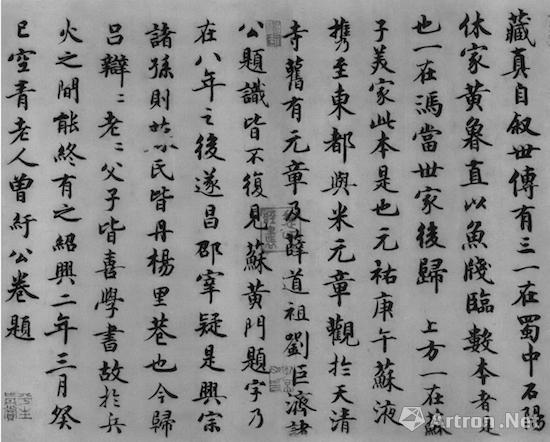 藏真自叙世傳有三一在蜀中石陽
休家黃魯直以魚牋臨數本者是
也一在馮當世家後歸 上方一在蘇
子美家此本是也元祐庚午蘇液
携至東都與米元章觀於天清
寺舊有元章及薛道祖劉巨濟諸
公題識皆不復見蘇黃門題字乃
在八年之後遂昌邵宰疑是興宗
諸孫則蘇氏皆丹楊里巷也今歸
呂辯〻老〻父子皆喜學書故於兵
火之間能終有之紹興二年三月癸
巳空青老人曾紆公卷題
Artron.Net